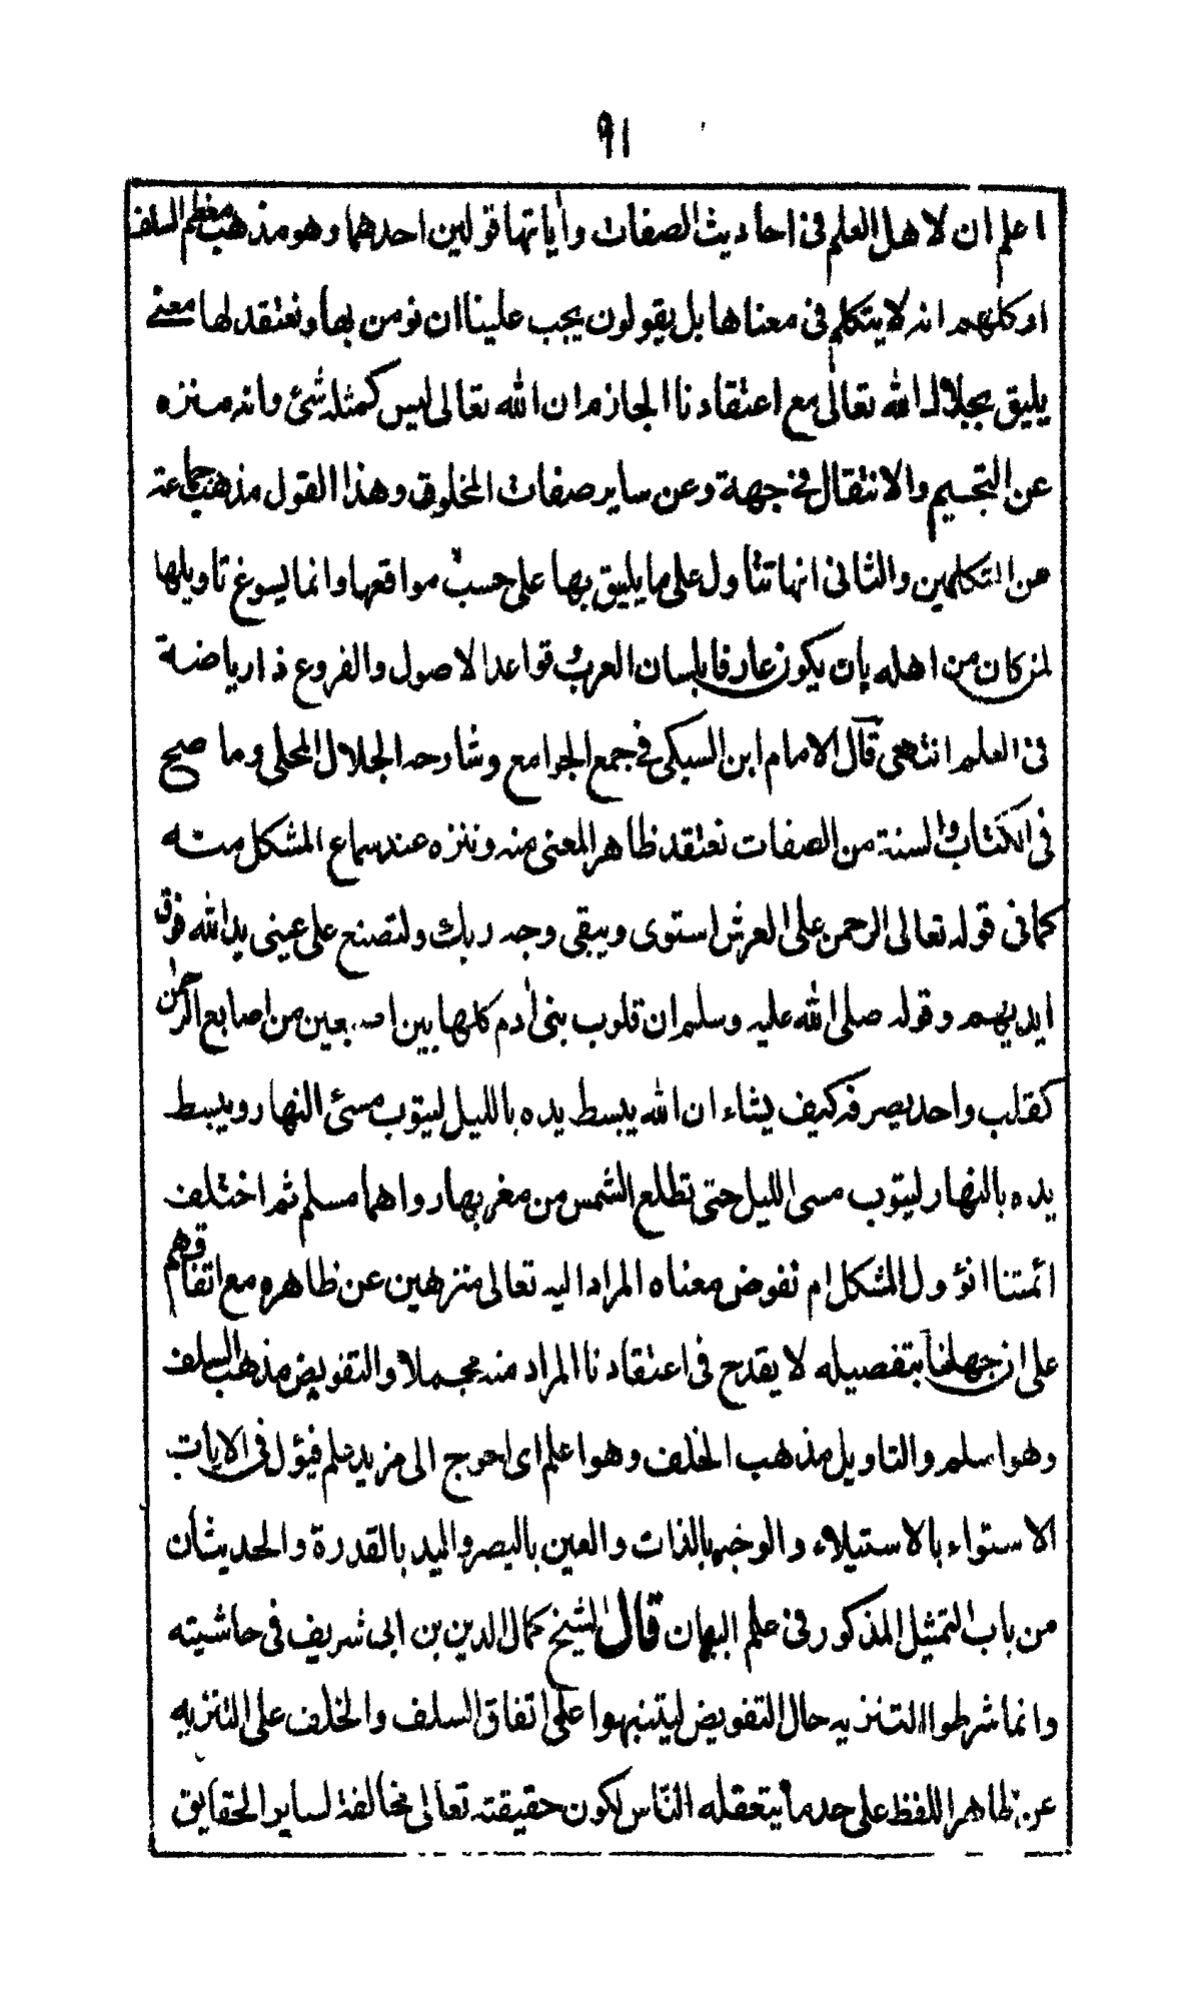 ٩١
اعلم ان لاهل العلم فى احاديث الصفات وأياتها قولين احدهما وهو مذهب معظم السلف
او كلهم انه لا يتكلم فى معناها بل يقولون يجب علينا ان نومن بها ونعتقد لها معنى
يليق بجلال الله تعالى مع اعتقادنا الجازم ان الله تعالى ليس كمثله شئ وانه منزه
عن التجسيم والانتقال فى جهة وعن ساير صفات المخلوق وهذا القول مذهب جماعته
من المتكلمين والثانى انها تتاول على ما يليق بها على حسب مواقعها وانما يسوغ تاويلها
لمن كان من اهله بان يكون عارفا بلسان العرب قواعد الاصول والفروع ذا رياضة
فى العلم انتهى قال الامام ابن السبكى فى جمع الجوامع وشارحه الجلال المحلى وما صح
فى الكتاب والسنة من الصفات نعتقد ظاهر المعنى منه وننزه عند سماع المشكل منه
كما فى قوله تعالى الرحمن على العرش استوى ويبقى وجه ربك ولتصنع على عينى يد الله فوق
ايديهم وقوله صلى الله عليه وسلم ان قلوب بنى أدم كلها بين اصبعين من اصابع الرحمن
كقلب واحد يصرفه كيف يشاء ان الله يبسط يده بالليل ليتوب مسئ النهار ويبسط
يده بالنهار ليتوب مسى الليل حتى تطلع الشمس من مغربها رواهما مسلم ثم اختلف
ائمتنا انؤول المشكل ام نفوض معناه المراد اليه تعالى منزهين عن ظاهره مع اتفاقهم
على ان جهلنا بتفصيله لا يقدح فى اعتقادنا المراد منه مجملا والتفويض مذهب السلف
وهو اسلم والتاويل مذهب الخلف وهو اعلم اى احوج الى مزيد علم فيؤل فى الايات
الاستواء بالاستيلاء والوجه بالذات والعين بالبصر واليد بالقدرة والحديثان
من باب التمثيل المذكور فى علم البيان قال الشيخ كمال الدين بن ابى شريف فى حاشيته
وانما شرطوا التنزيه حال التفويض ليتنبهوا على اتفاق السلف والخلف على التنزيه
عن ظاهر اللفظ على حد ما يتعقله الناس لكون حقيقته تعالى مخالفة لساير الحقايق